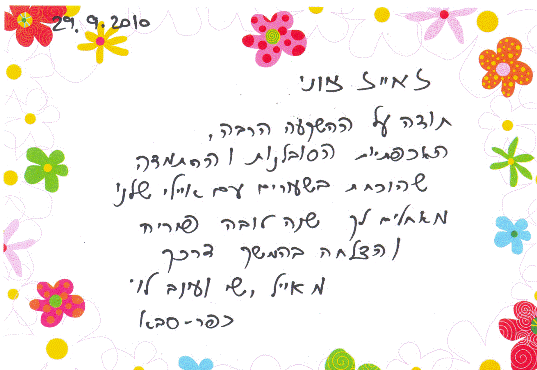 29.9.2010
לאייל
תודה על ההשקעה הרבה,
האכפתיות הסובלנות וההתמדה
שהוכחת בשעורים עם איילי שלנו
מאחלים לך שנה טובה פוריה
והצלחה בהמשך דרכך
מאייל, שי ועינב לוי
כפר-סבא